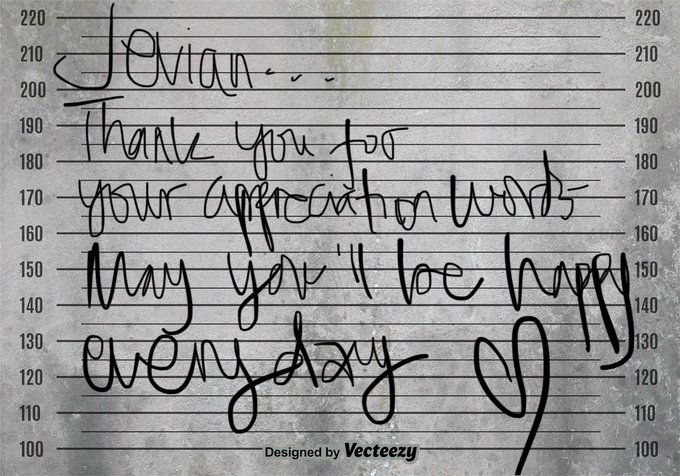 Jevian....
220 220
210 210
200 200
Thank you for
190 190
180 180
your appreciation words
170 170
160 160
May you'll be happy
150 150
140 140
every day
130 130
120 120
110 110
100 Designed by Vecteezy 100